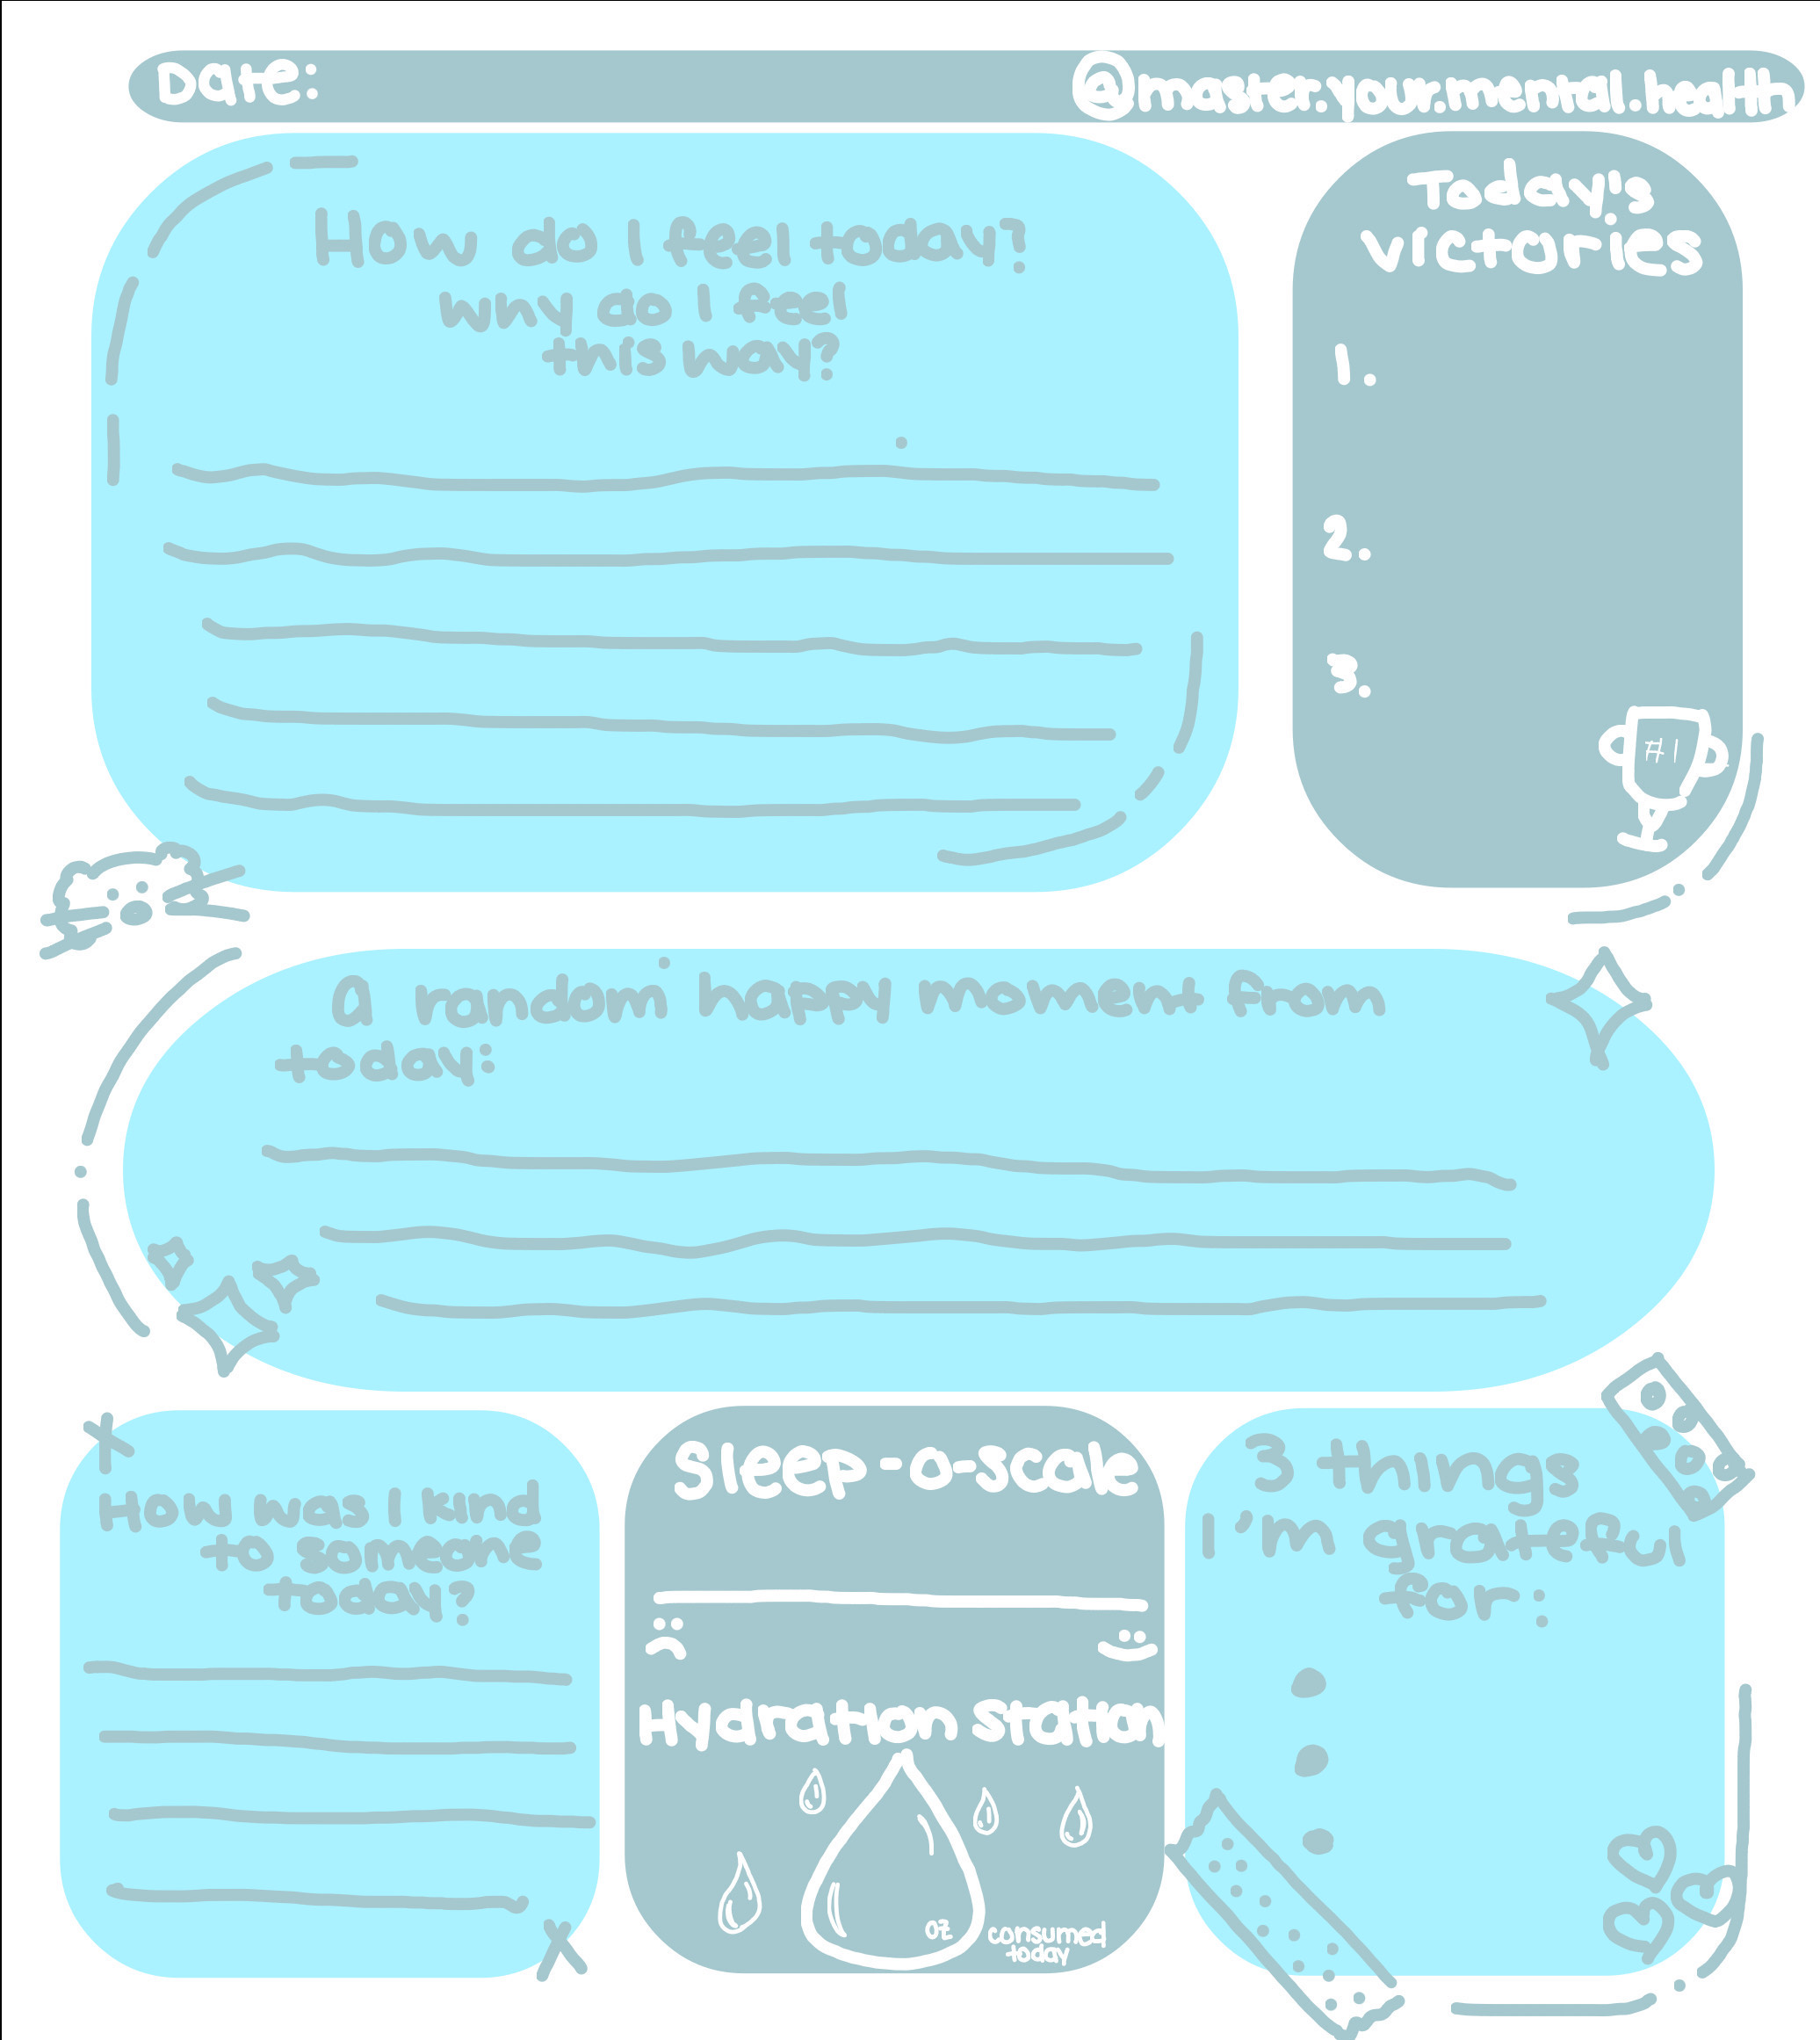 Date:
@master.your.mental.health
How do I feel today?
why do I feel
this way?
Today's
victories
1.
2.
3.
#1
A random happy moment from
today:
How was I kind
to someone
today?
Sleep-a-scale
Hydration station
oz
consumed
today
3 things
I'm grateful
for: